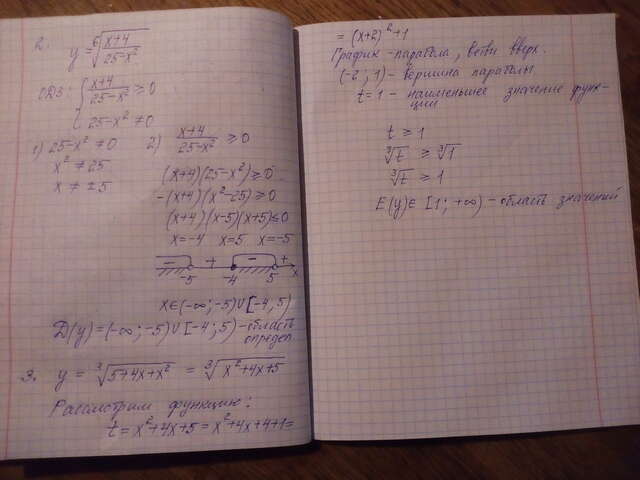 2. y = ⁶√((x+4)/(25-x²))
ОДЗ: { (x+4)/(25-x²) ≥ 0
25-x² ≠ 0
1) 25-x² ≠ 0
x² ≠ 25
x ≠ ±5
2) (x+4)/(25-x²) ≥ 0
(x+4)(25-x²) ≥ 0
-(x+4)(x²-25) ≥ 0
(x+4)(x-5)(x+5) ≤ 0
x=-4 x=5 x=-5
- + - +
-5 -4 5 x
x∈(-∞;-5)∪[-4,5)
D(y)=(-∞;-5)∪[-4;5) - область
определ.
3. y = ³√(5+4x+x²) = ³√(x²+4x+5)
Рассмотрим функцию:
t = x²+4x+5 = x²+4x+4+1=
= (x+2)²+1
График - парабола, ветви вверх.
(-2;1) - вершина параболы
t=1 - наименьшее значение функ-
ции
t ≥ 1
³√t ≥ ³√1
³√t ≥ 1
E(y)∈ [1;+∞) - область значений